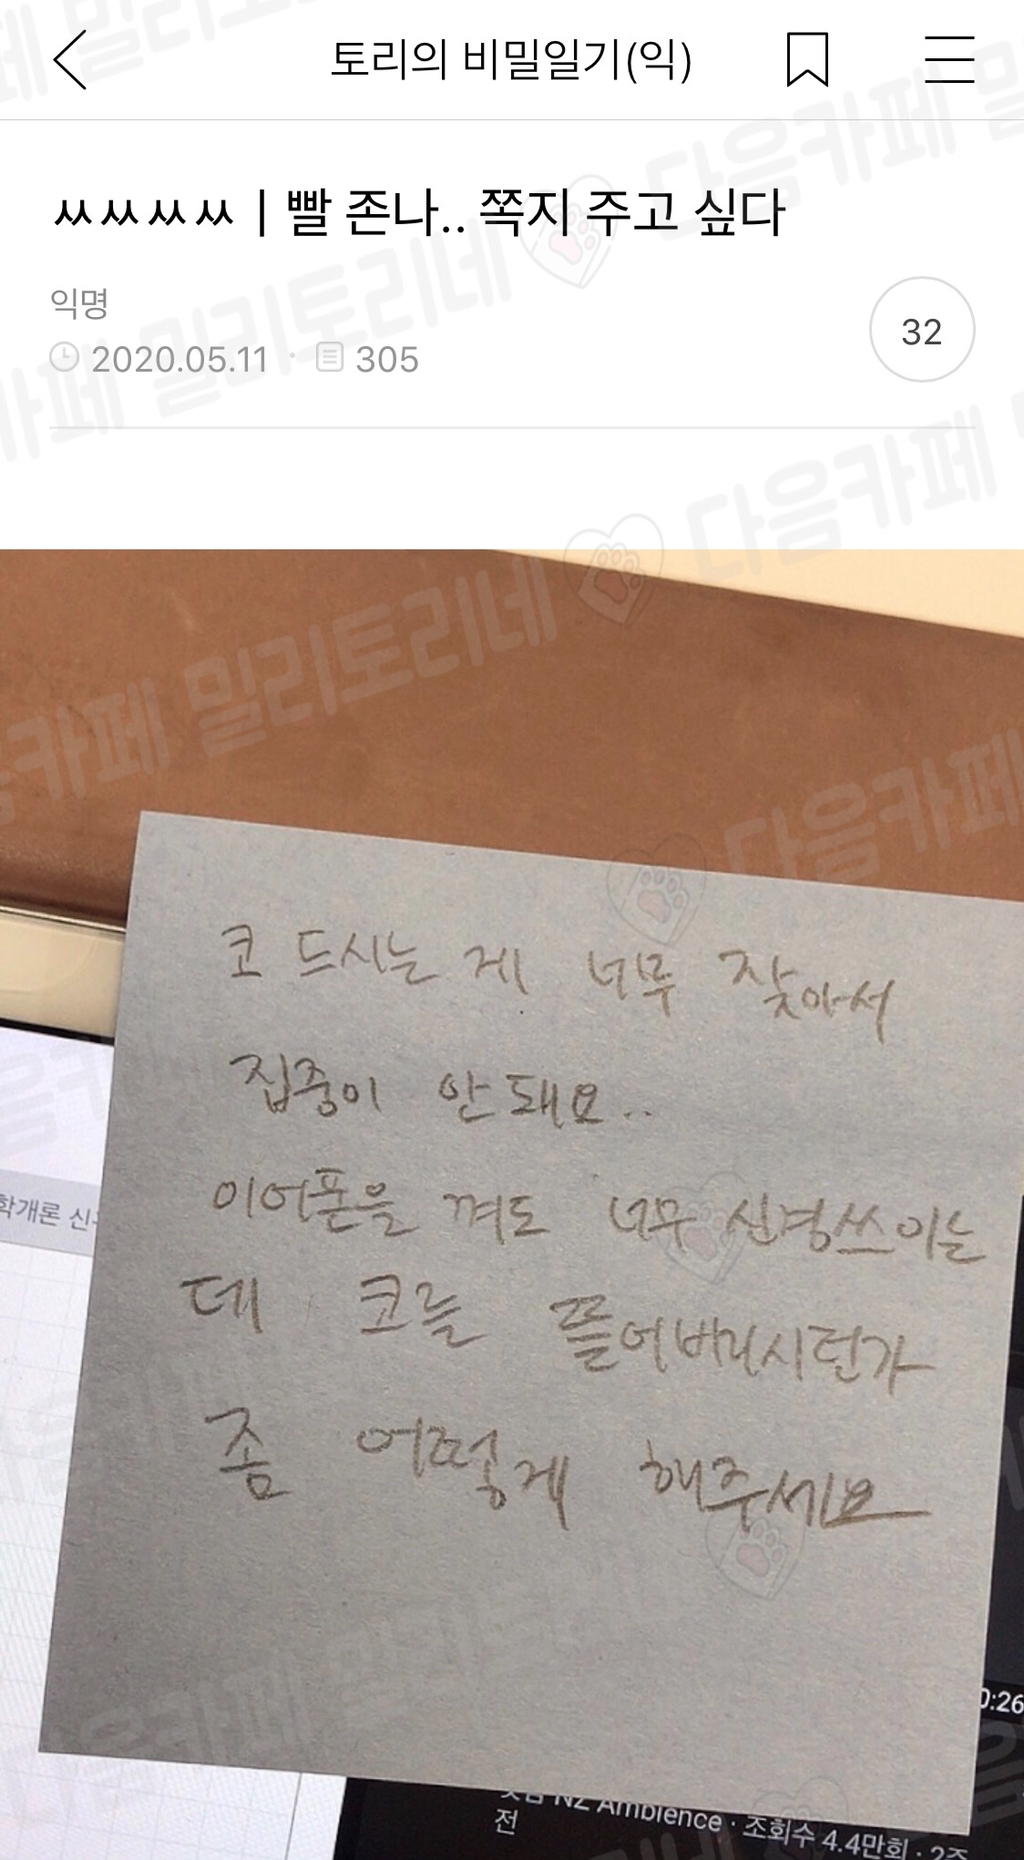 토리의 비밀일기(익)
ㅆㅆㅆㅆ | 빨 존나.. 쪽지 주고 싶다
익명
2020.05.11 · 305
32
다음카페 밀리토리네
코 드시는 게 너무 잦아서
집중이 안돼요..
이어폰을 껴도 너무 신경쓰이는
데 코를 뜰어버리시던가
좀 어떻게 해주세요
학개론 신
0:26
NZ Ambience · 조회수 4.4만회 · 2주
전